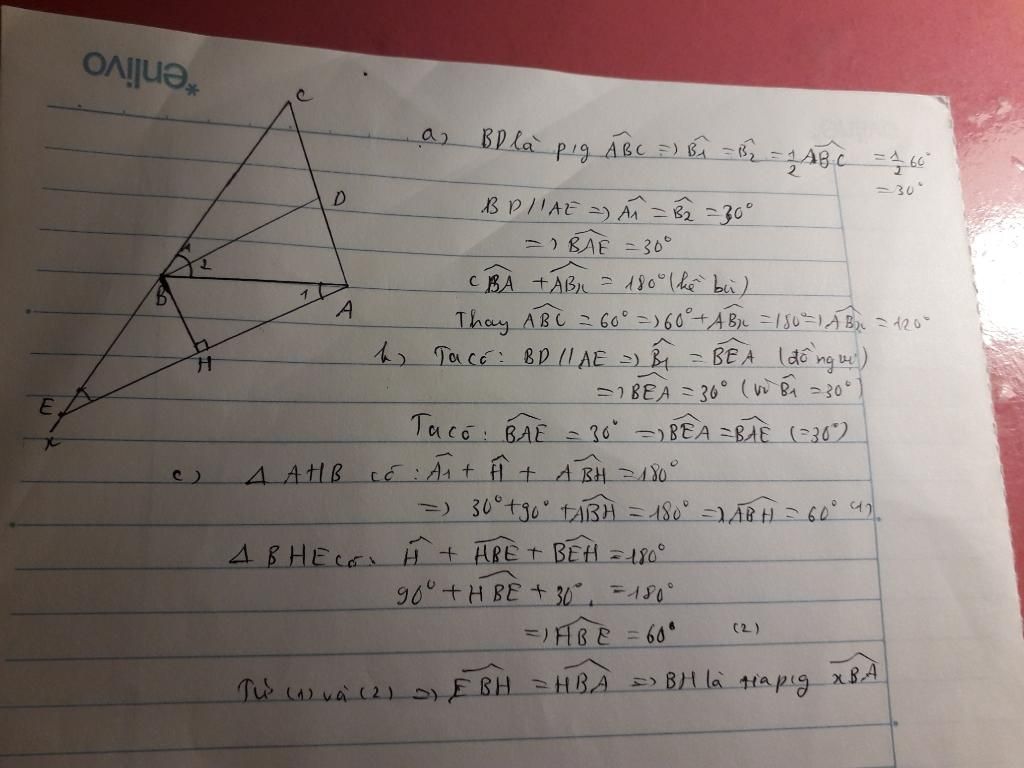 *enlivo
C
D
1
2
B
1
A
H
E
x
a) BD là pıg A^BC => B1^ = B2^ = 1/2 ABC^ = 1/2 60°
= 30°
BD // AE => A1^ = B2^ = 30°
=> BAE^ = 30°
CBA^ + ABx^ = 180° (kề bù)
Thay ABC^ = 60° => 60° + ABx^ = 180° => ABx^ = 120°
b) Ta có: BD // AE => B1^ = BEA^ (đồng vị)
=> BEA^ = 30° (vì B1^ = 30°)
Ta có: BAE^ = 30° => BEA^ = BAE^ (=30°)
c) Δ AHB có: A1^ + H^ + ABH^ = 180°
=> 30° + 90° + ABH^ = 180° => ABH^ = 60° (1)
Δ BHE có: H^ + HBE^ + BEH^ = 180°
90° + HBE^ + 30° = 180°
=> HBE^ = 60° (2)
Từ (1) và (2) => EBH^ = HBA^ => BH là tia pıg xBA^